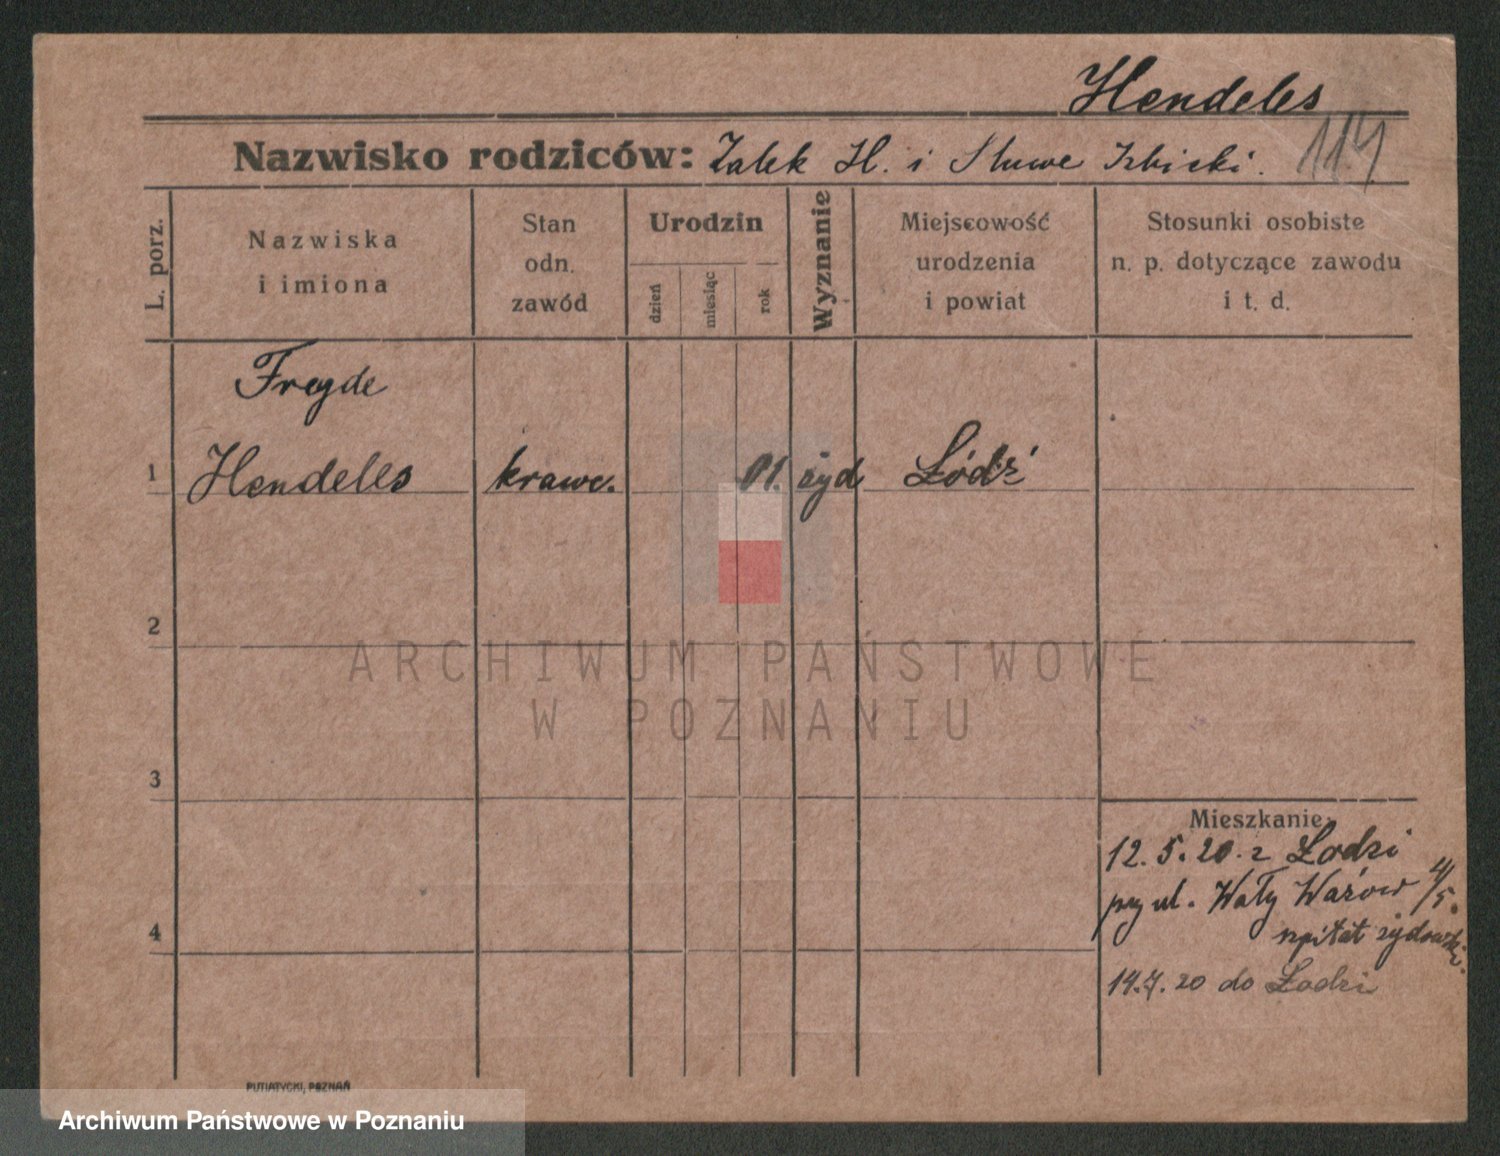 Hendeles
Nazwisko rodziców: Zalek H. i Sluwe Izbicki. 117
L. porz.
Nazwiska
i imiona
Stan
odn.
zawód
Urodzin
dzień
miesiąc
rok
Wyznanie
Miejscowość
urodzenia
i powiat
Stosunki osobiste
n. p. dotyczące zawodu
i t. d.
Freyde
1 Hendeles krawc. 01. żyd Łódź
2
3
4
Mieszkanie:
12. 5. 20. z Łodzi
przy ul. Wały Wazów 4/5.
szpital żydowski.
14.7.20 do Łodzi
PUTIATYCKI, POZNAŃ
ARCHIWUM PAŃSTWOWE
W POZNANIU
Archiwum Państwowe w Poznaniu